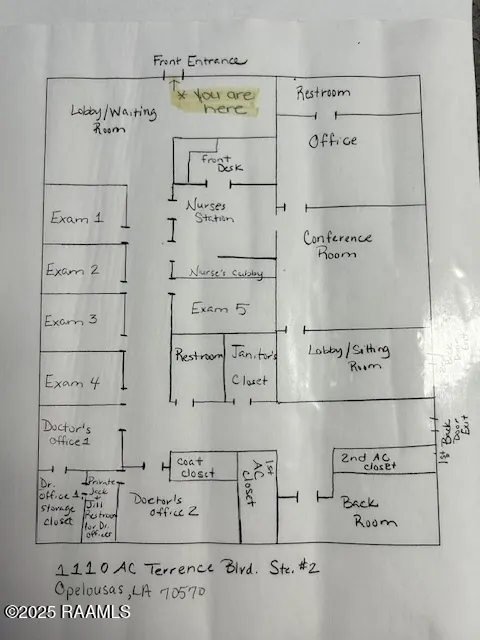 Front Entrance
* You are
here
Lobby/Waiting
Room
Restroom
Office
Front
Desk
Nurses
Station
Exam 1
Conference
Room
Exam 2
Nurse's Cubby
Exam 3
Exam 5
Restroom
Janitor's
Closet
Lobby/Sitting
Room
Exam 4
Doctor's
Office 1
1st Back
Door
Exit
Coat
closet
1st
AC
closet
2nd AC
closet
Dr.
Office 1
storage
closet
Private
Jack
Jill
Restroom
for Dr.
offices
Doctor's
office 2
Back
Room
1110 AC Terrence Blvd. Ste. #2
Opelousas, LA 70570
©2025 RAAMLS